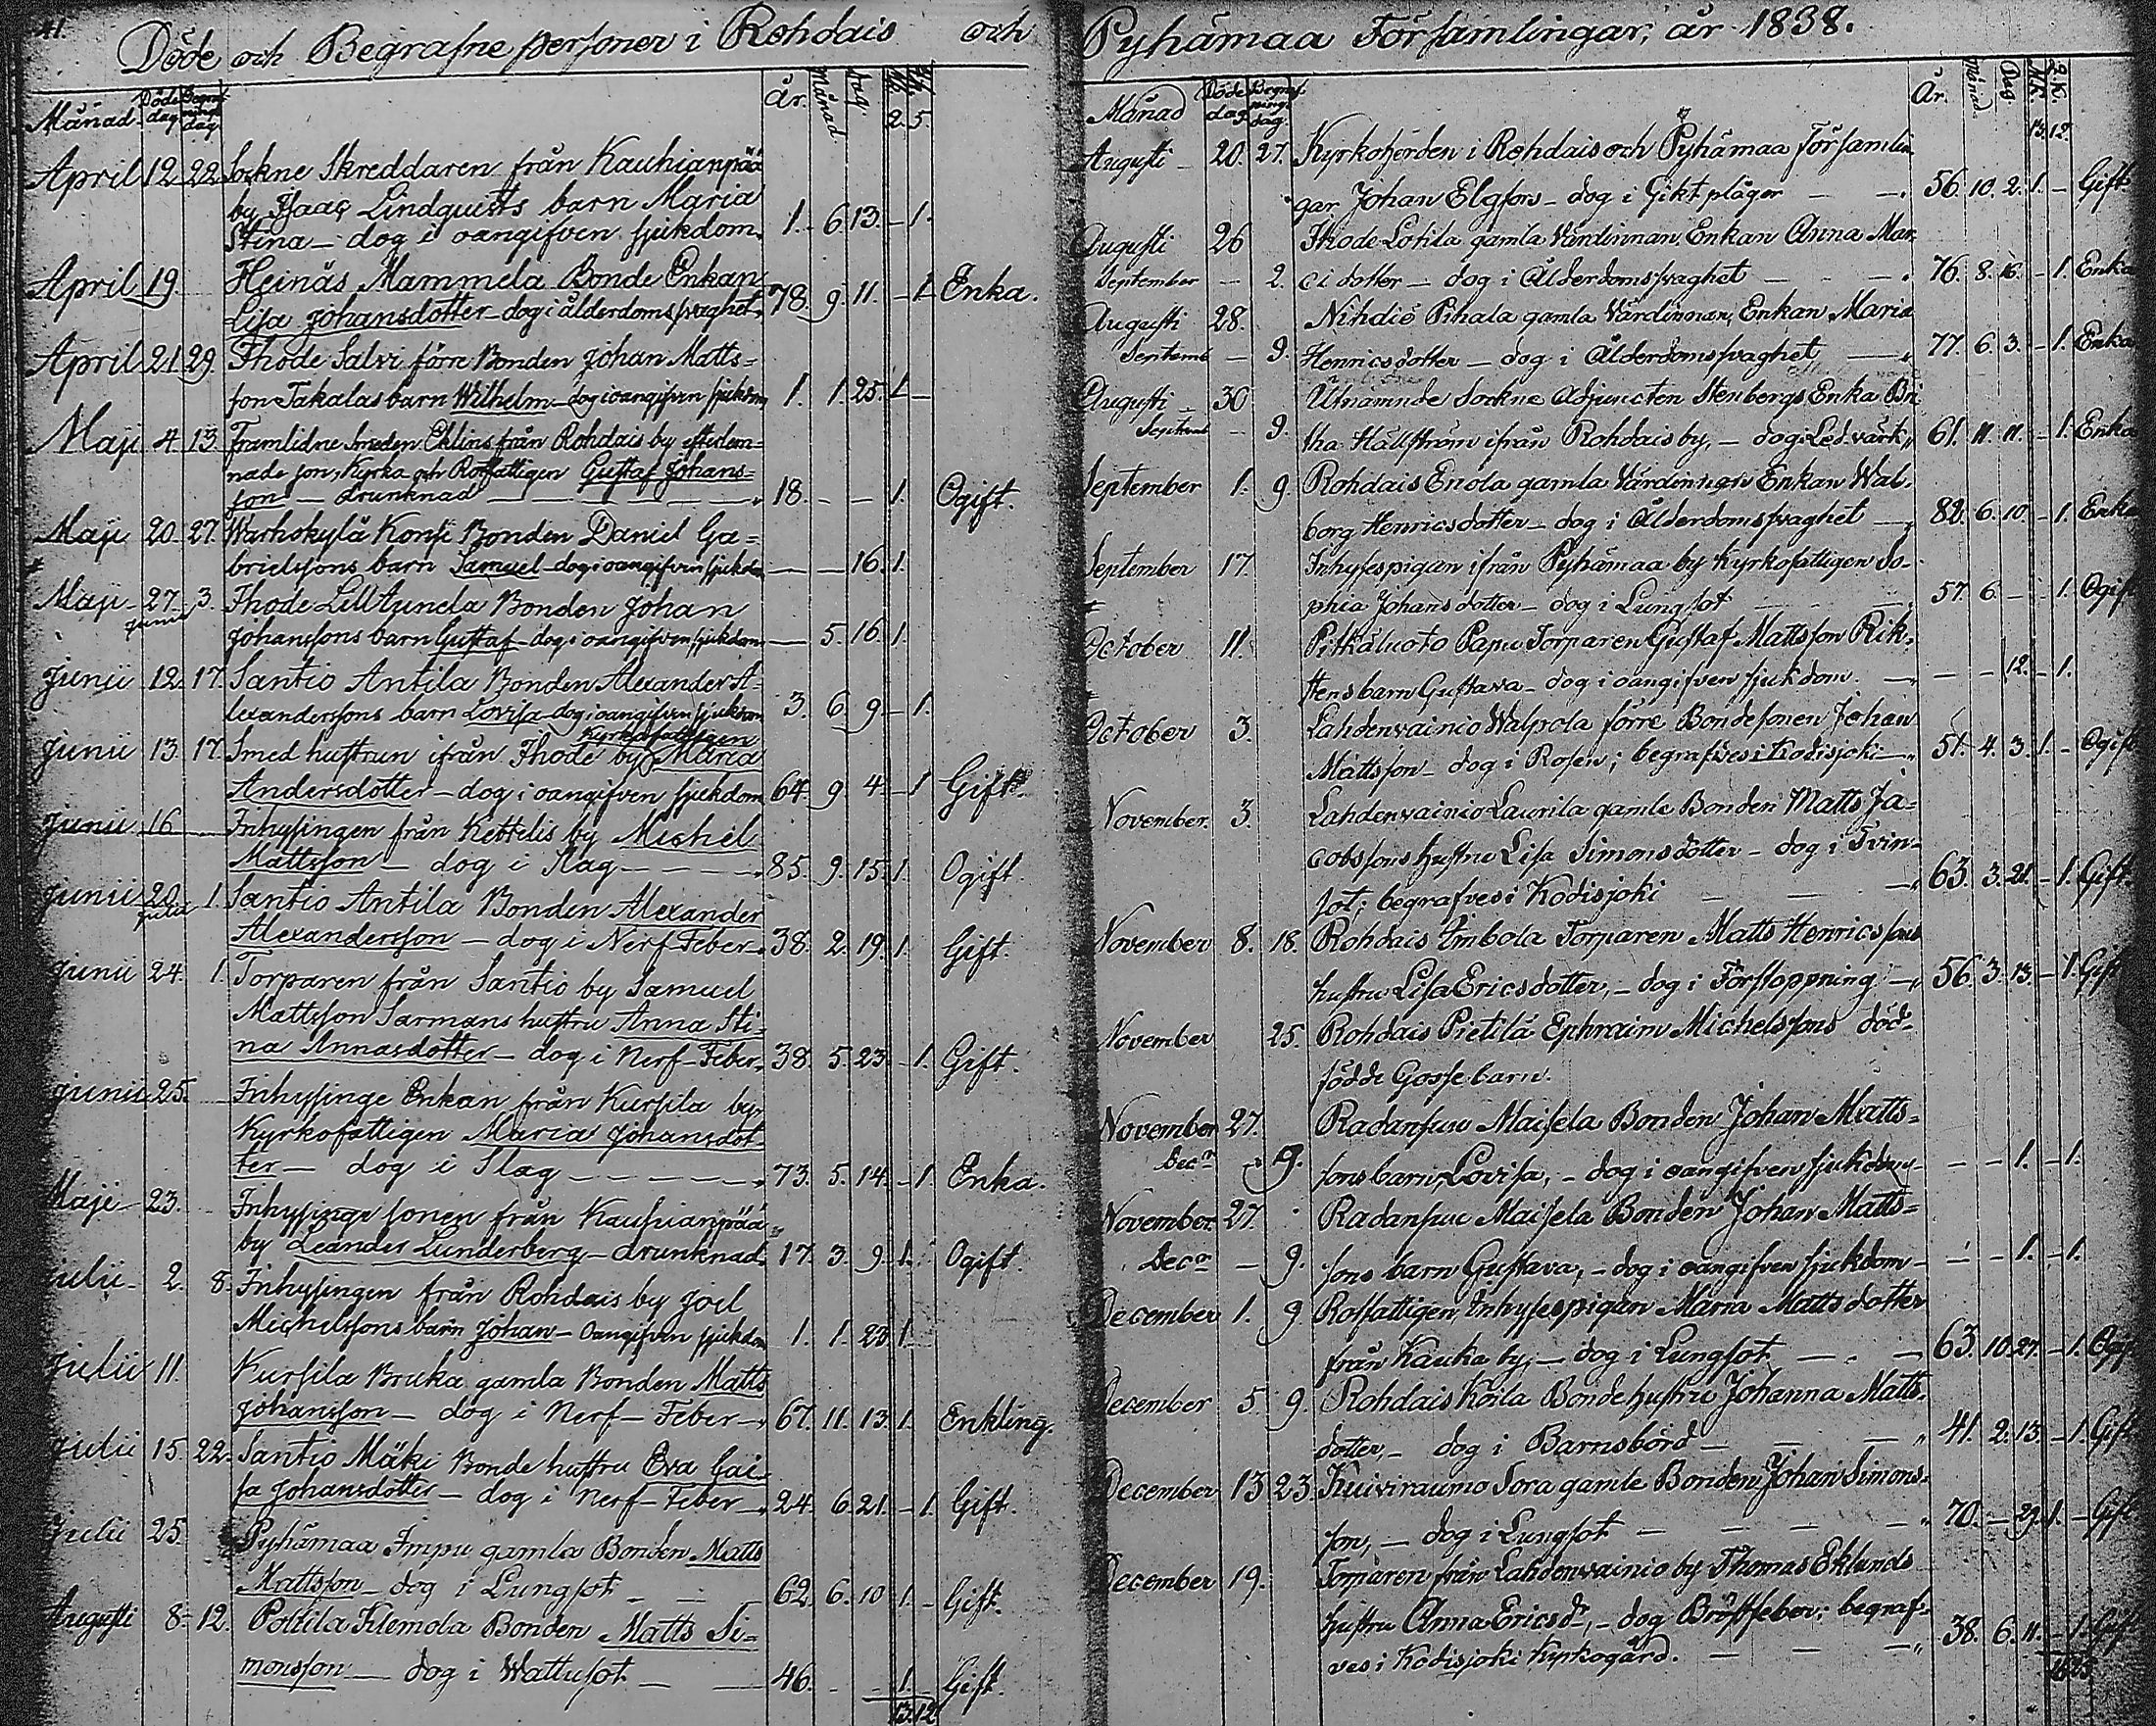 41.
Döde och Begrafne personer i Rohdais och
Månad. Döde dag Begrafnings dag År. Månad. dag. Mk. Qk.
2. 5.
April 12 22 Sockne Skreddaren från Kauhianpää
by Isaac Lindquists barn Maria
Stina — dog i oangifven sjukdom. 1. 6. 13. — 1.
April 19 Heinäs Mammela Bonde Enkan
Lisa Johansdotter — dog i ålderdomssvaghet. 78. 9. 11. — 1 Enka.
April 21 29 Ihode Salvi förre Bonden Johan Matts=
son Takalas barn Wilhelm — dog i oangifven sjukdom 1. 1. 25. 1 —
Maji 4. 13. Framlidne Smeden Eklins från Rohdais by efterlem=
nade son, Kyrko och Rotfattigen Gustaf Johans=
son — drunknad 18. — — 1. Ogift.
Maji 20. 27. Warhokylä Konsi Bonden Daniel Ga=
brielssons barn Samuel — dog i oangifven sjukdom — — 16. 1.
Maji 27. Junii 3. Ihode Lill Äijnela Bonden Johan
Johanssons barn Gustaf — dog i oangifven sjukdom — 5. 16. 1.
Junii 12. 17. Santio Antila Bonden Alexander A=
lexanderssons barn Lovisa — dog i oangifven sjukdom 3. 6. 9. — 1.
Junii 13. 17. Smed hustrun ifrån Ihode by Kyrkofattigen Maria
Andersdotter — dog i oangifven sjukdom 64. 9. 4. — 1 Gift.
Junii 16 Inhysingen från Kettelis by Michel
Mattsson — dog i Slag 85. 9. 15. 1. Ogift.
Junii 20. Julii 1. Santio Antila Bonden Alexander
Alexandersson — dog i Nerf Feber 38. 2. 19. 1. Gift.
Junii 24. 1. Torparen från Santio by Samuel
Mattsson Sarmans hustru Anna Sti=
na Annasdotter — dog i Nerf-Feber. 38. 5. 23. — 1. Gift.
Junii 25. Inhysinge Enkan från Kursila by,
Kyrkofattigen Maria Johansdot=
ter — dog i Slag 73. 5. 14. — 1. Enka.
Maji 23. Inhysinge sonen från Kauhianpää
by Leander Lunderberg — drunknad. 17. 3. 9. 1. Ogift.
Julii 2. 8. Inhysingen från Rohdais by Joel
Michelssons barn Johan — Oangifven sjukdom 1. 1. 23. 1.
Julii 11. Kursila Bruka gamla Bonden Matts
Johansson — dog i Nerf-Feber 67. 11. 13. 1. Enkling.
Julii 15. 22. Santio Mäki Bonde hustru Eva Cai=
sa Johansdotter — dog i Nerf-Feber 24. 6. 21. — 1. Gift.
Julii 25. Pyhämaa Impu gamla Bonden Matts
Mattsson — dog i Lungsot 62. 6. 10 1. Gift.
Augusti 8. 12. Poltila Klemola Bonden Matts Si=
monsson — dog i Wattusot 46. 1. Gift.
13. 12.
Pyhämaa Församlingar, år 1838.
Månad Döde dag. Begrafnings dag. År. Månad Dag. Mk. Qk.
13. 12.
Augusti 20. 27. Kyrkoherden i Rohdais och Pyhämaa Församlin
gar Johan Elgfors — dog i Gikt plågor 56. 10. 2. 1. — Gift
Augusti 26 Ihode Lotila gamla Värdinnan, Enkan Anna Mar
September — 2. ci dotter — dog i Ålderdomssvaghet 76. 8. 16. — 1. Enka
Augusti 28. Nihdiö Pihala gamla Värdinnan, Enkan Maria
Septemb — 9. Henricsdotter — dog i Ålderdomssvaghet 77. 6. 3. — 1. Enka
Augusti 30 Utnämnde Sockne Adjuncten Stenbergs Enka Bri
Septemb — 9. tha Hällström ifrån Rohdais by, — dog i Ledvärk 61. 11. 11. — 1. Enka
September 1. 9. Rohdais Enola gamla Värdinnan Enkan Wal
borg Henricsdotter — dog i Ålderdomssvaghet 82. 6. 10. — 1. Enka
September 17. Inhysespigan ifrån Pyhämaa by Kyrkofattigen So-
phia Johansdotter — dog i Lungsot 57. 6. — — 1. Ogift
October 11. Pitkäluoto Papu Torparen Gustaf Mattsson Rik
stens barn Gustava — dog i oangifven sjukdom. — — 12. — 1.
October 3. Lahdenvainio Walpola förre Bondesonen Johan
Mattsson — dog i Rosen; begrafves i Kodisjoki 51. 4. 3. 1. — Ogift
November. 3. Lahdenvainio Laurila gamle Bonden Matts Ja=
cobssons hustru Lisa Simonsdotter — dog i Tvin=
sot; begrafves i Kodisjoki 63. 3. 21. — 1. Gift.
November 8. 18. Rohdais Imbola Torparen Matts Henricssons
hustru Lisa Ericsdotter, — dog i Förstoppning 56. 3. 13. — 1. Gift
November 25. Rohdais Pietilä Ephraim Michelssons död=
födde Gossebarn.
November 27. Radansuu Maisela Bonden Johan Matts=
Decr 9. sons barn, Lovisa, — dog i oangifven sjukdom — — 1. — 1.
November 27. Radansuu Maisela Bonden Johan Matts=
Decr — 9. sons barn Gustava, — dog i oangifven sjukdom — — 1. — 1.
December 1. 9 Rotfattigen, Inhysespigan Maria Matts dotter
från Kauka by; — dog i Lungsot 63. 10. 27. — 1. Ogift
December 5. 9. Rohdais Koila Bondehustru Johanna Matts-
dotter, — dog i Barnsbörd 41. 2. 13. — 1. Gift
December 13 23. Kuiviraumo Sora gamle Bonden Johan Simons=
son, — dog i Lungsot 70. — 29. 1. — Gift
December 19. Torparen från Lahdenvainio by Thomas Eklunds
hustru Anna Ericsdr, — dog Bröstfeber; begraf=
ves i Kodisjoki Kyrkogård. 38. 6. 11. — 1 Gift